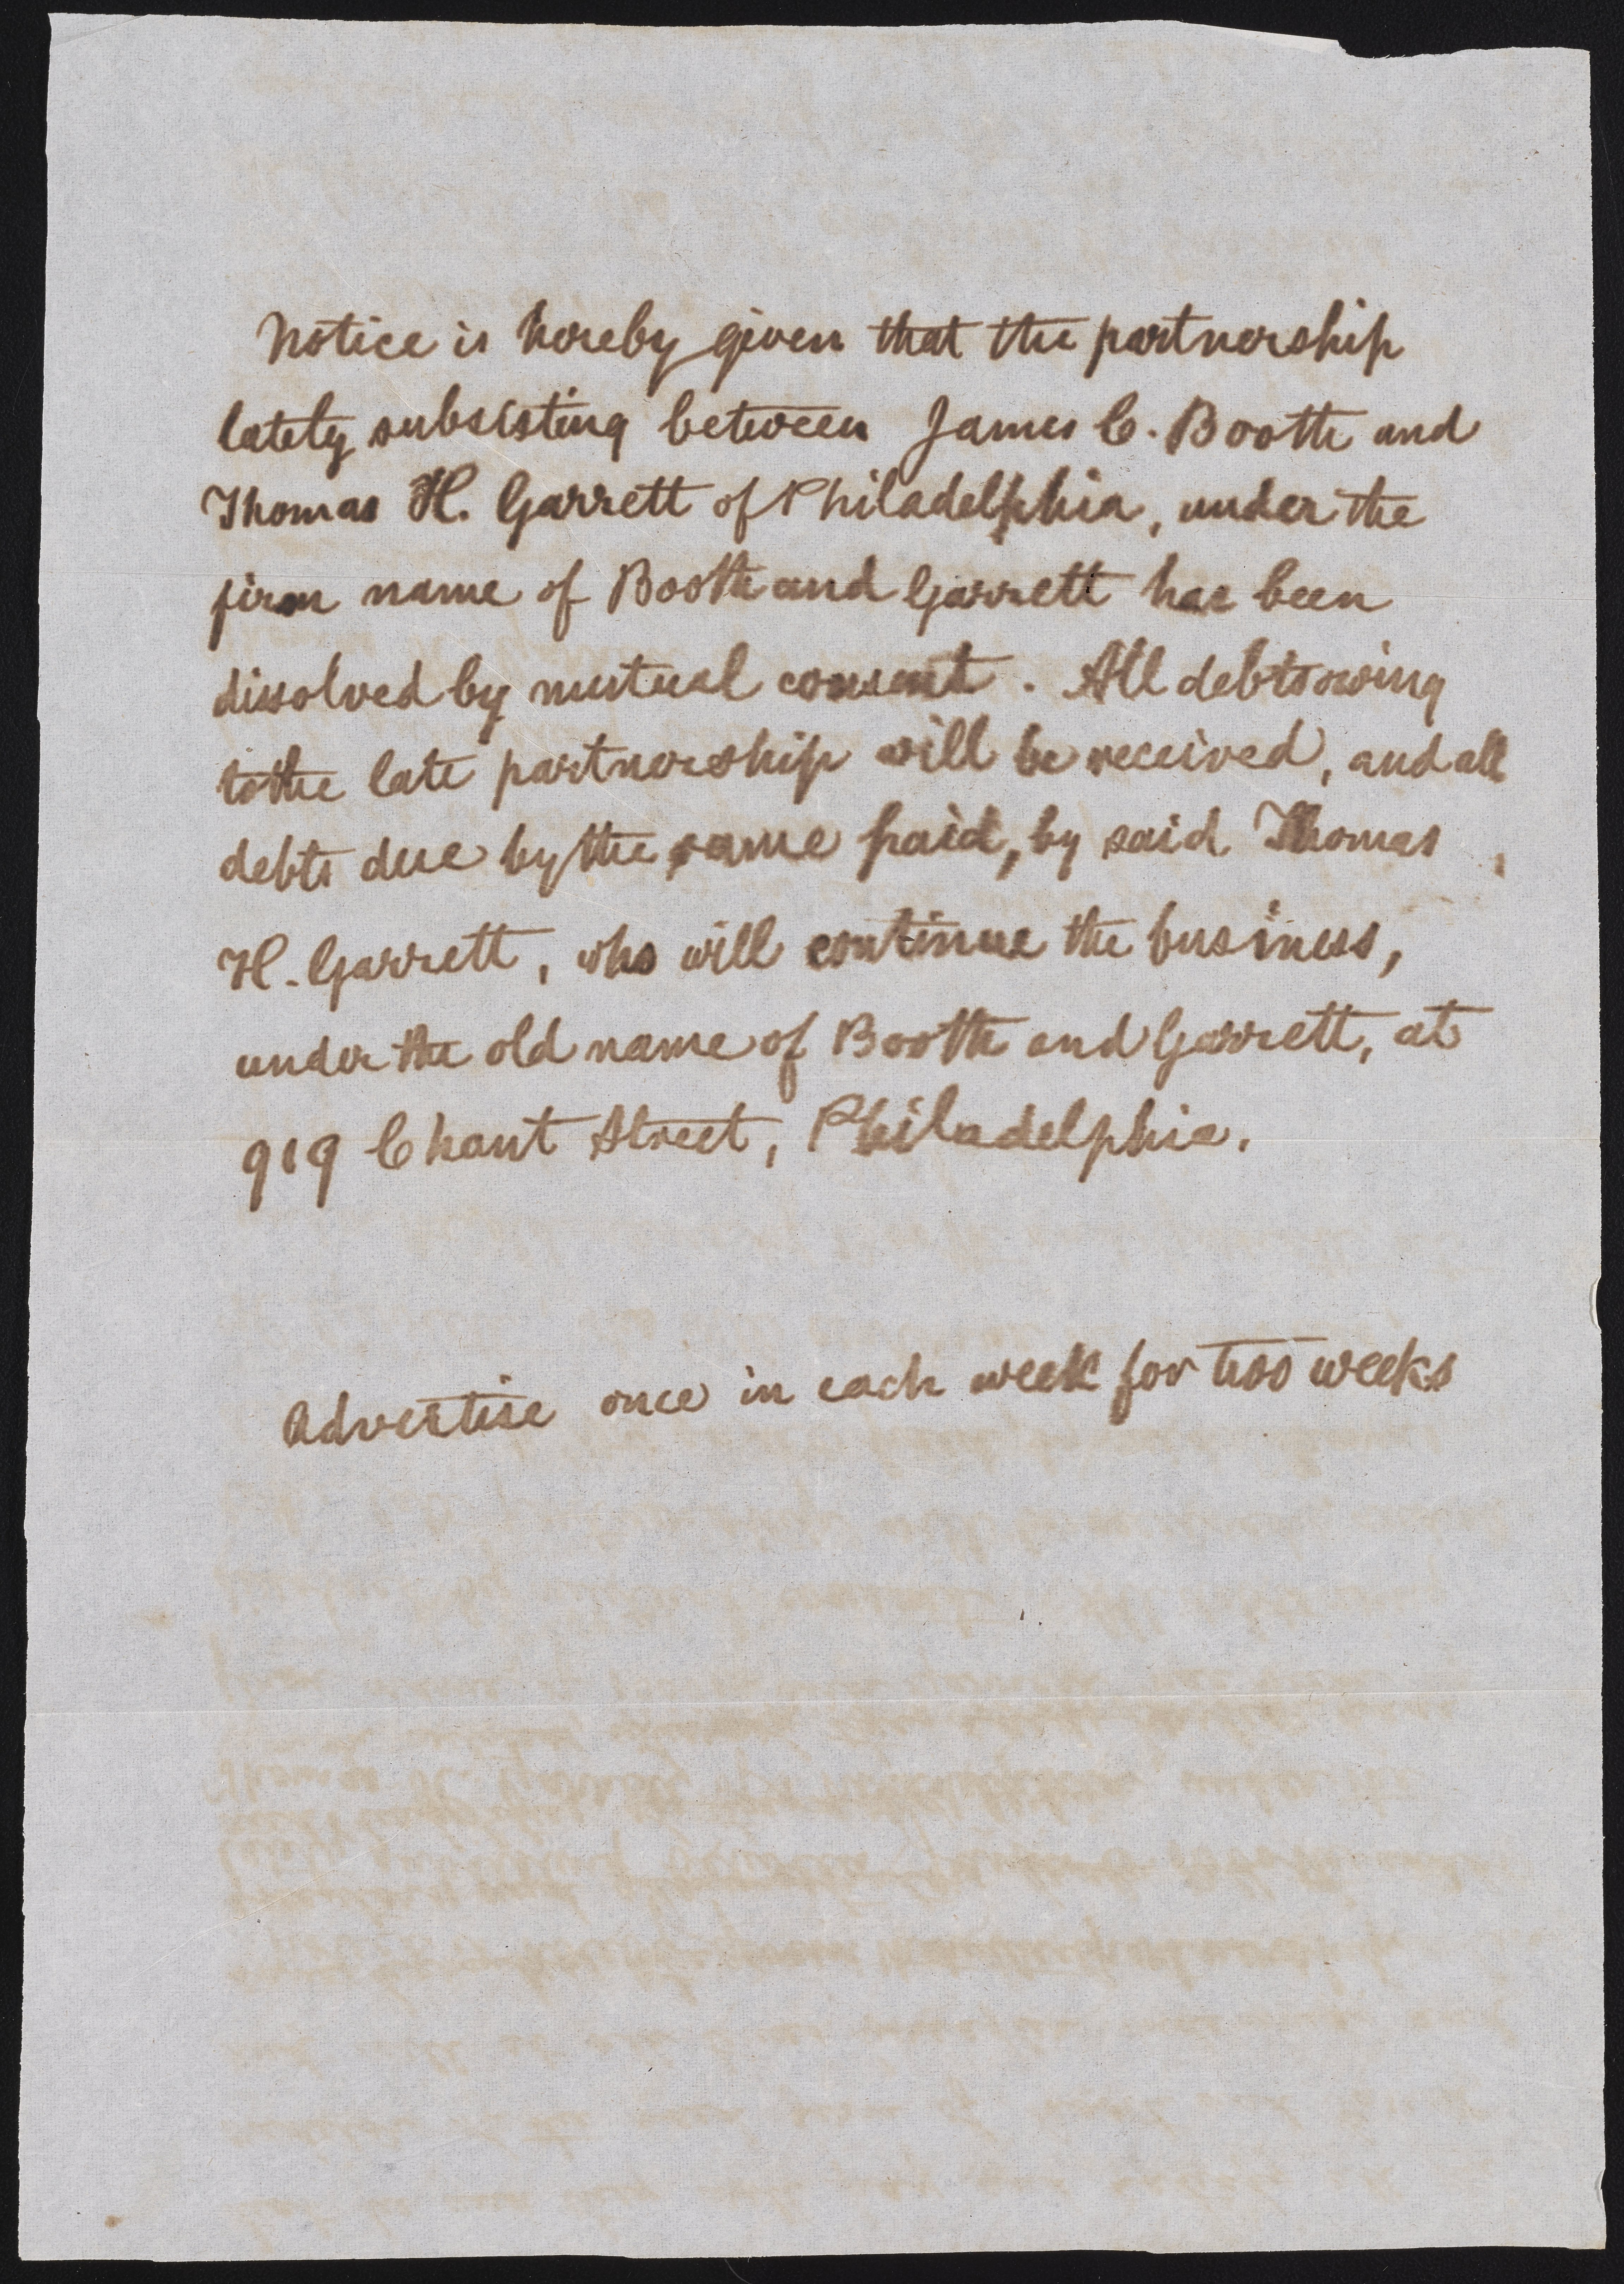 Notice is hereby given that the partnership
lately subsisting between James C. Booth and
Thomas H. Garrett of Philadelphia, under the
firm name of Booth and Garrett has been
dissolved by mutual consent. All debts owing
to the late partnership will be received, and all
debts due by the same paid, by said Thomas
H. Garrett, who will continue the business,
under the old name of Booth and Garrett, at
919 Chant Street, Philadelphia.
Advertise once in each week for two weeks